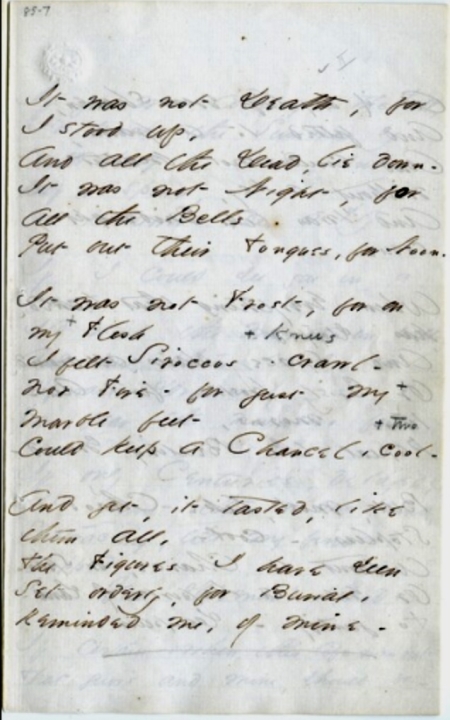 85-7
It was not Death, for
I stood up,
And all the Dead, lie down -
It was not Night, for
all the Bells
Put out their Tongues, for Noon.
It was not Frost, for on
my + Flesh + Knees
I felt Siroccos - crawl -
Nor Fire - for just my +
marble feet - + two
Could keep a Chancel, cool -
And yet, it tasted, like
them all,
The Figures I have seen
Set orderly, for Burial,
Reminded me, of mine -